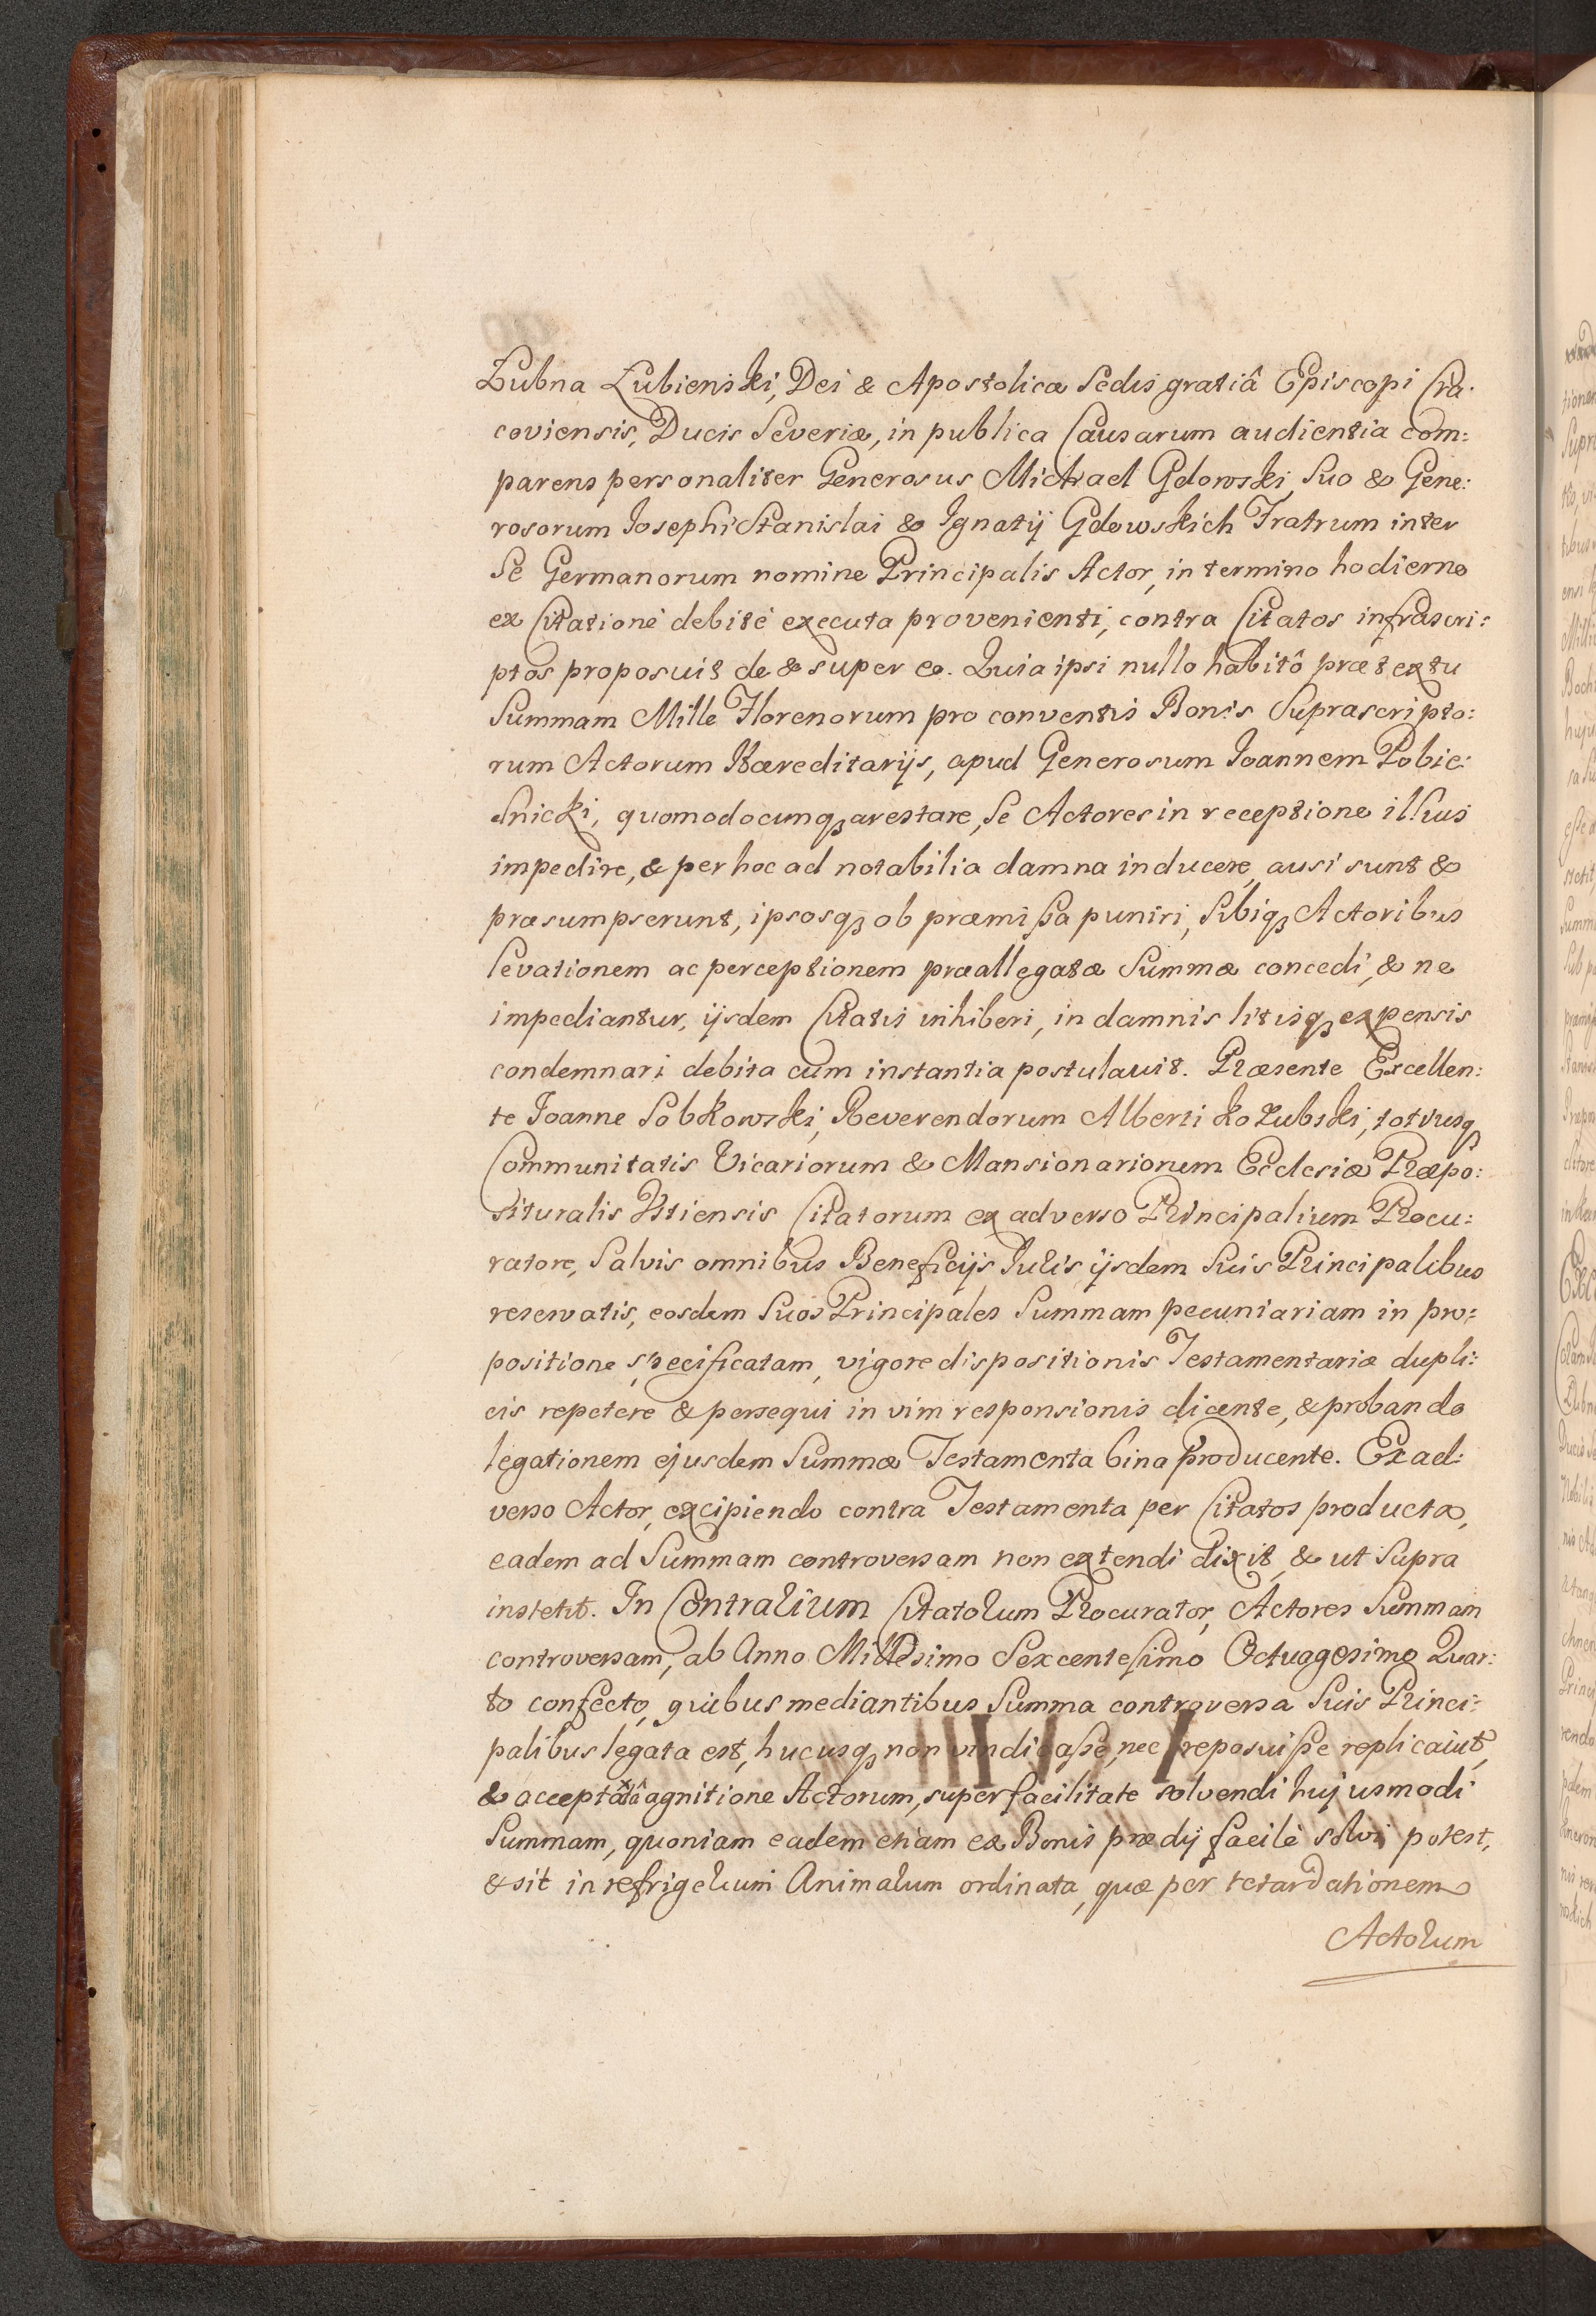 Łubna Łubieński, Dei & Apostolicæ Sedis gratiâ Episcopi Cra:
coviensis, Ducis Severiæ, in publica Causarum audientia com:
parens personaliter Generosus Michael Gdowski, suo & Gene:
rosorum Josephi Stanislai & Ignatij Gdowskich Fratrum inter
Se Germanorum nomine Principalis Actor, in termino hodierno
ex Citatione debite executa provenienti, contra Citatos infrascri:
ptos proposuit de & super eo. Quia ipsi nullo habitô prætextu
Summam Mille Florenorum pro conventis Bonis Suprascripto:
rum Actorum Hæreditarijs, apud Generosum Joannem Pobie:
snicki, quomodocunqꝫ arestare, Se Actores in receptione illius
impedire, & per hoc ad notabilia damna inducere, ausi sunt &
præsumpserunt, ipsosqꝫ ob præmissa puniri, Sibiqꝫ Actoribus
levationem ac perceptionem præallegatæ Summæ concedi, & ne
impediantur, ijsdem Citatis inhiberi, in damnis litisqꝫ expensis
condemnari debita cum instantia postulavit. Præsente Excellen:
te Joanne Sobkowski, Reverendorum Alberti Kozubski, totiusqꝫ
Communitatis Vicariorum & Mansionariorum Ecclesiæ Præpo:
situralis Vstiensis Citatorum ex adverso Principalium Procu:
ratore, Salvis omnibus Beneficijs Juris ijsdem Suis Principalibus
reservatis, eosdem Suos Principales Summam pecuniariam in pro:
positione specificatam, vigore dispositionis Testamentariæ dupli:
cis repetere & persequi in vim responsionis dicente, & probando
legationem ejusdem Summæ Testamenta bina producente. Ex ad:
verso Actor, excipiendo contra Testamenta per Citatos producta,
eadem ad Summam controversam non extendi dixit, & ut supra
institit. In Contrarium Citatorum Procurator, Actores Summam
controversam, ab Anno Millesimo Sexcentesimo Octuagesimo Quar:
to confecto, quibus mediantibus Summa controversa Suis Princi:
palibus legata est, hucusqꝫ non vindicasse, nec reposuisse replicavit,
& acceptâtâ agnitione Actorum, super facilitate solvendi hujusmodi
Summam, quoniam eadem etiam ex Bonis prædij facilè solvi potest,
& sit in refrigerium Animarum ordinata, quæ per retardationem
Actorum